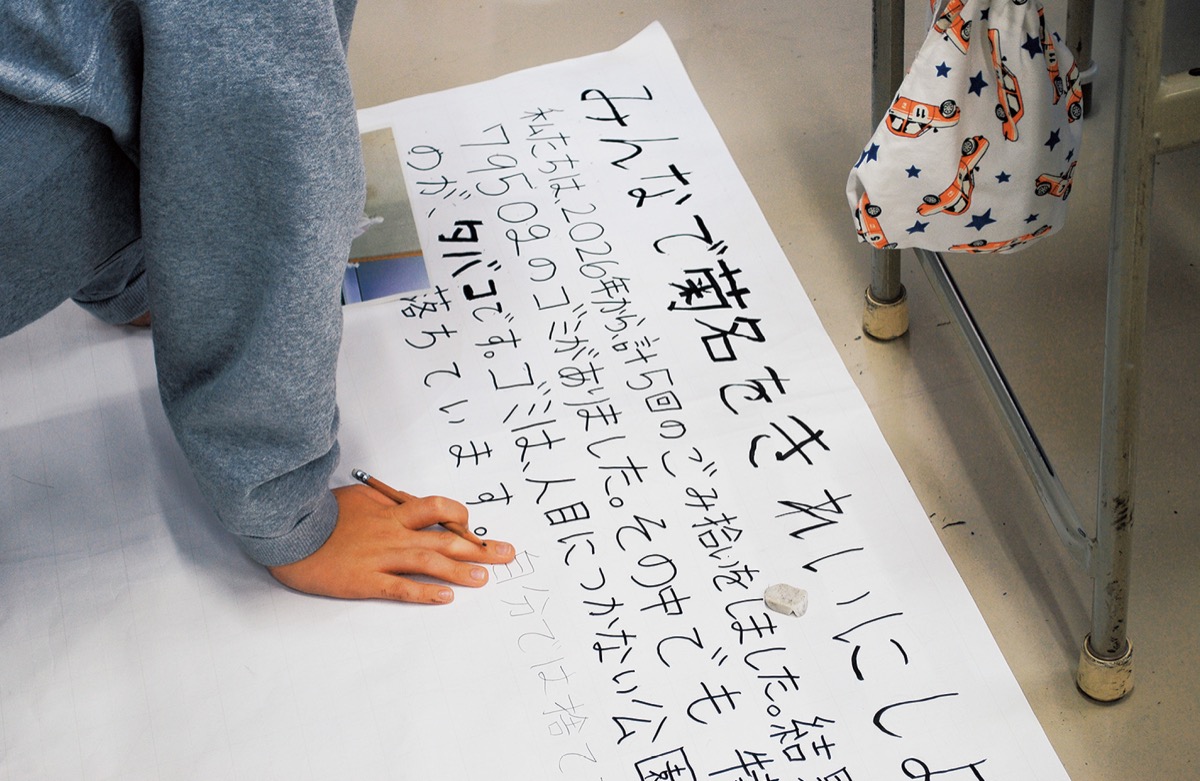 みんなで菊名をきれいにしよ
私たちは、2026年から、計5回のごみ拾いをしました。結果
7950gのゴミがありました。その中でも特
のが、タバコです。ゴミは、人目につかない公園
落ちています。自分では捨て
11